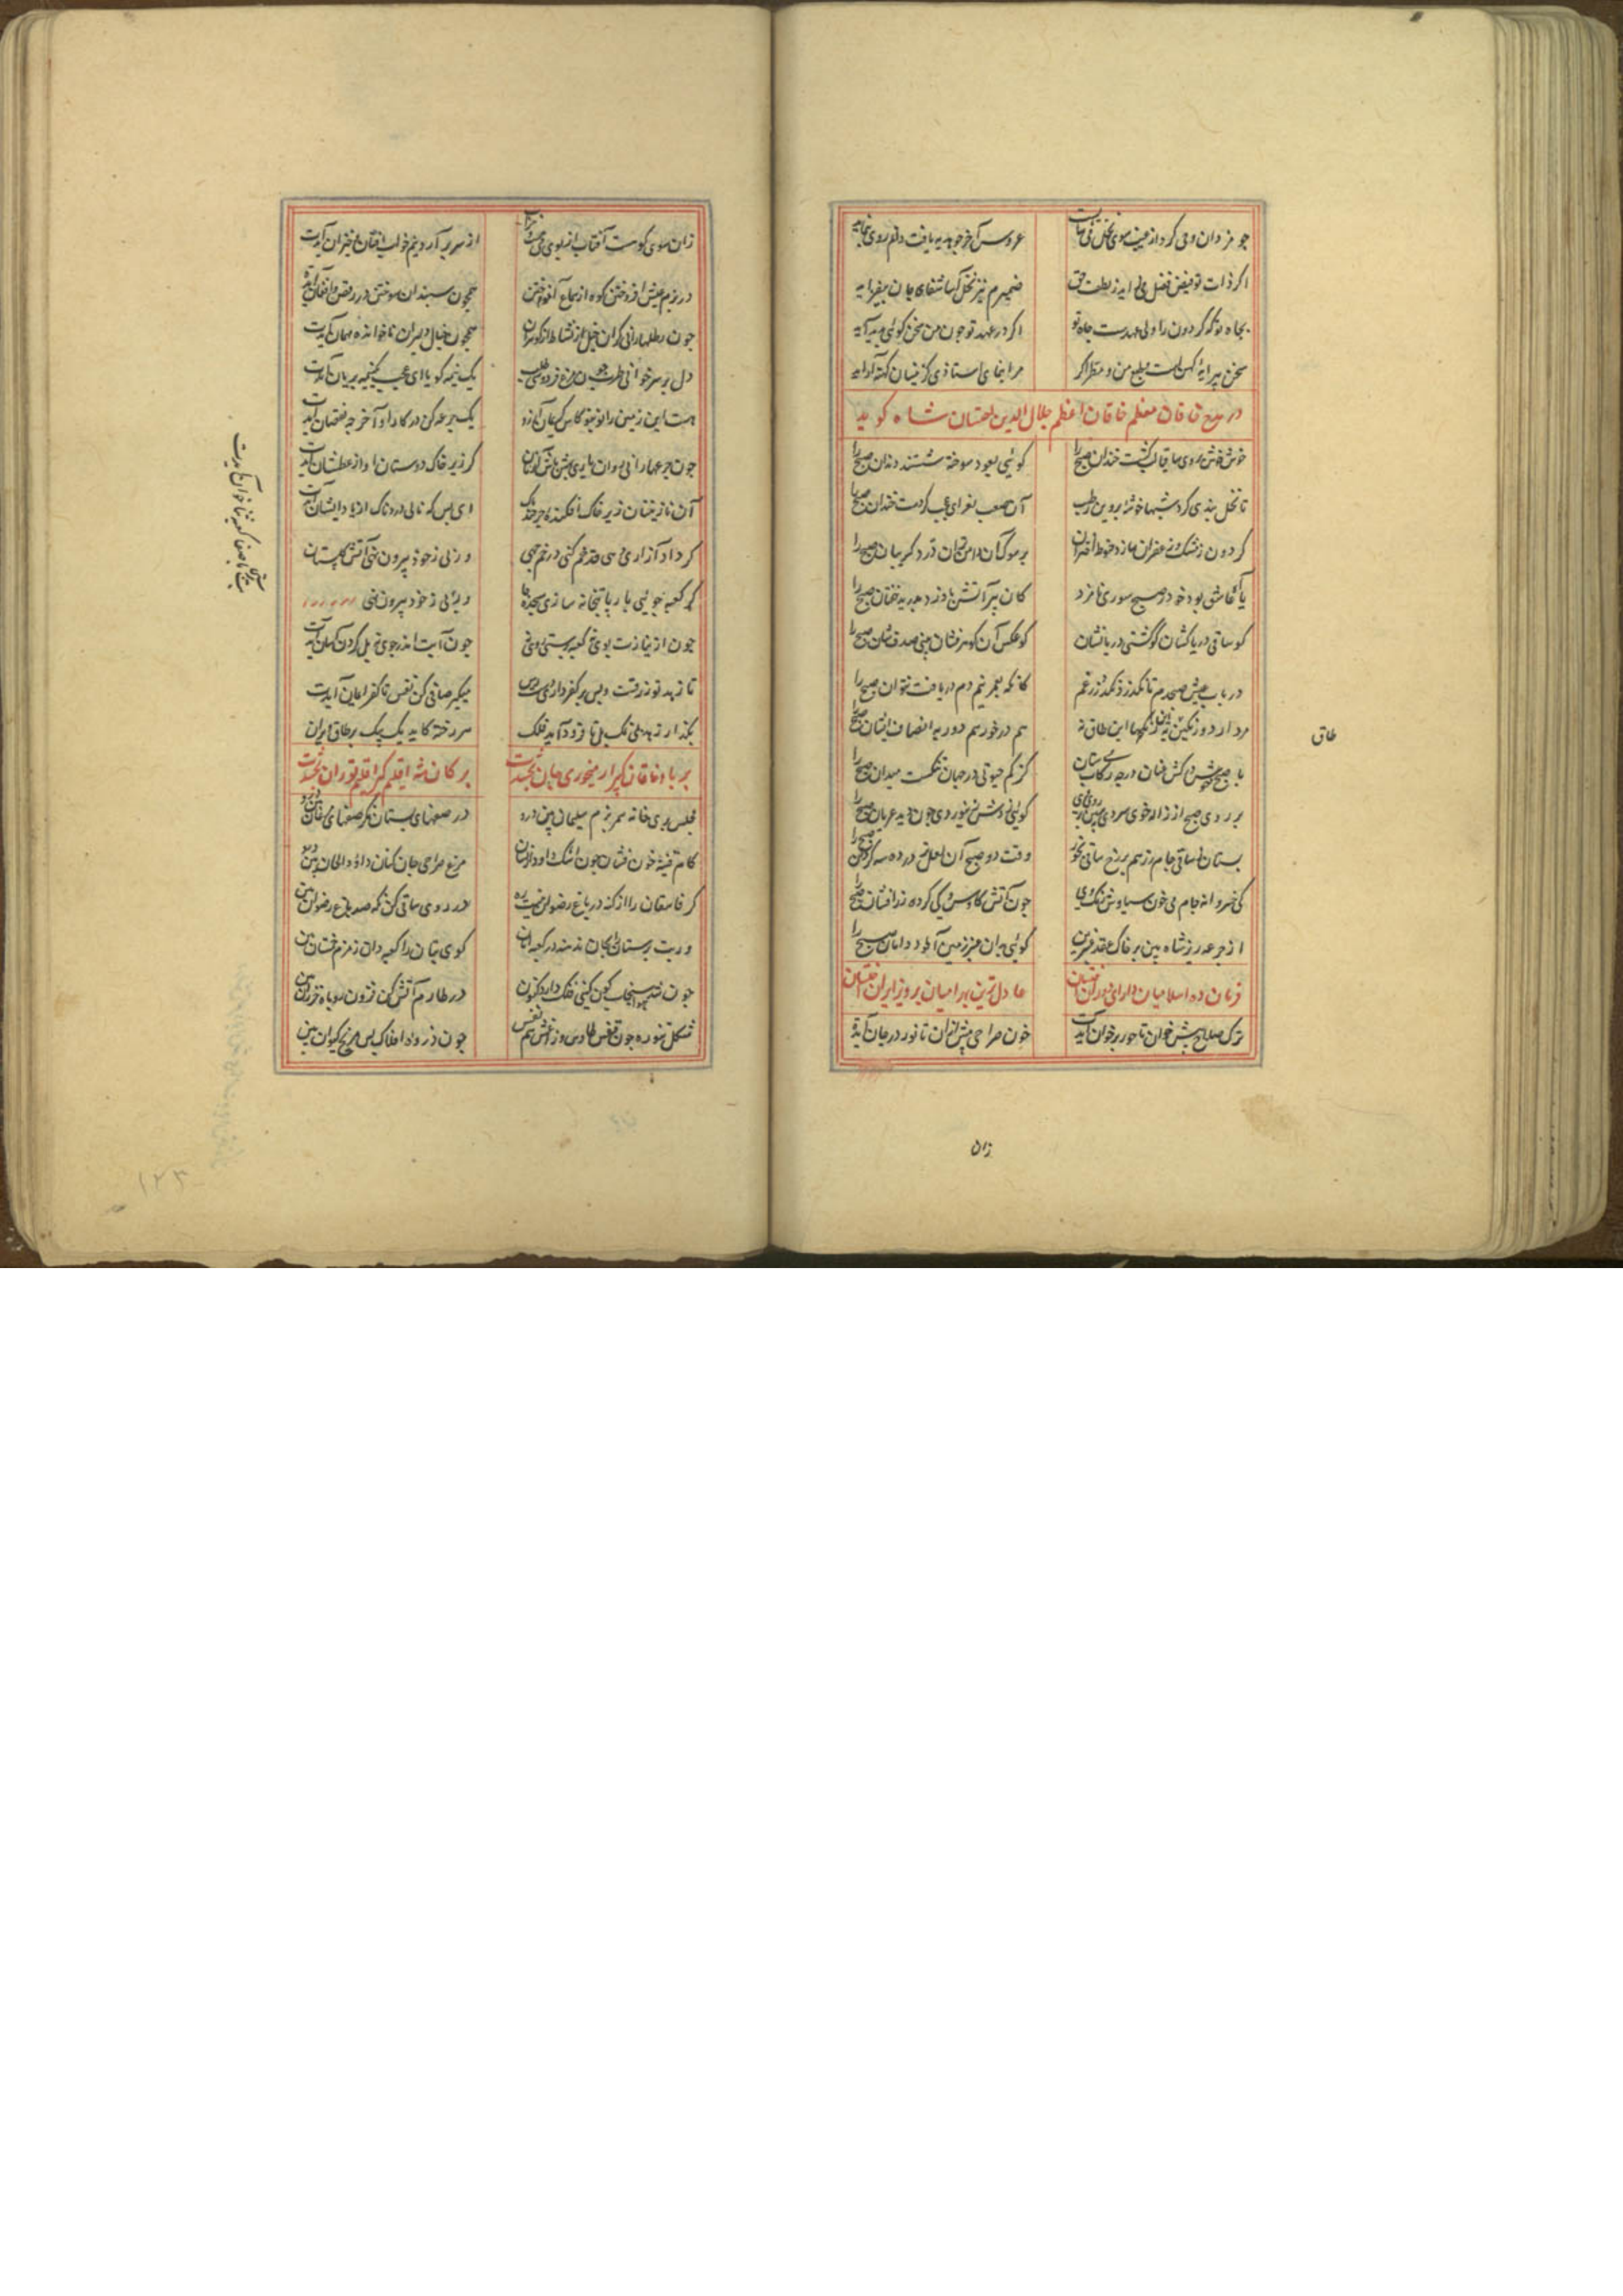 چو مزدان وحی کرد از غیب سوی نحل فی الحال عروس آخر چو هدیه یافت دانم روی بنماید
اکر ذات تو فیض فضل می‌ یابد ز لطف حق ضمیرم نیز نحل آسا شفای جان بیفزاید
بجاه تو که کردون را ولی عهدست جاه تو اکر در عهد تو چون من سخن کوئی پدید آید
سخن پیرایهٔ کهن است طبع من و منظر اکر مرا بنمای استاذی کزینسان کهنه آراید
در مدح خاقان معظم خاقان اعظم جلال الدین اخستان شاه کوید
خوش خوش بروی ساقیان لب کشت خندان صبح را کوئی بعود سوخته شستند دندان صبح را
تا نخل بندی کرد شبها خوشهٔ پروین رطب آن صعب بغرای عجب کردست خندان صبح را
کردون ز مشک و زعفران سازد حنوط اختران بر سوک آن دامن تران درد کریبان صبح را
یا عاشق بود خود در صبح سوری نامزد کان پیر آتش بادزد هدیه خفتان صبح را
کو ساقی دریاکشان کو کشتی دریانشان کو عکس آن کوهرفشان بینی صدف‌شان صبح را
دریاب عیش صبحدم تا نکذرد بکذر ز غم کانکه بعمر نیم دم دریافت نتوان صبح را
مردار دو رنکین به این طاق نه هم درخورهم دور به انصاف ایشان صبح را
با صبح خوش درکش عنان درجه رکاب می ستان کز کم حیوتی در جهان تنکست میدان صبح را
بر روی صبح از ژاله خوی سردی ببین بر روی خوی کوئی ز مشرق نیوردی چون دید عریان صبح را
بستان ز ساقی جام زر هم بر رخ ساقی بخور وقت دو صبح آن لعل تر درده سه کردان صبح را
کیخسروانه جام می خون سیاوش رنک وی چون آتش کاوس کی کرده زرافشان صبح را
از جرعه ریز شاه بین بر خاک عقد عنبرین کوئی بدان عنبر زمین آلود دامان صبح را
فرمان ده اسلامیان دارای دوران اخستان عادل‌ترین بهرامیان پرویز ایران اخستان
ترک صلاح پیش خوان تا حور بر خوان آیدت خون صراحی پیش ران تا نور در جان آیدت
طاق
زان
زان سوی کوست آفتاب از بوی می مست خراب از سر برآرد نیم خواب افتان و خیزان آیدت
در بزم عیش افروختن کوه از سماع آموختن همچون سپندان سوختن در رقص و افغان آیدت
چون رطلها رانی کران خیل نشاط از هر کران همچون خیال دلبران ناخوانده مهمان آیدت
دل بر سر خوان طرب چون مرغ فردوسی طلب یک نیمه کویا ای عجب یک نیمه بریان آیدت
هست این زمین را نو بنو کاس کریمان آرزو یک جرعه کن در کار او آخر چه نقصان آیدت
چون جرعها رانی روان باری بشیدنش کریان کز زیر خاک دوستان آواز عطشان آیدت
آن نازنینان زیر خاک افکندهٔ چرخ‌اند پاک ای بس که نالی دردناک ار یاد ایشان آیدت
کر داد آزاری دهی قدم کنی در غم جهی ور نی ز خود بیرون نهی آتش کلستان آیدت
کر کعبه جوئی با ریا بتخانه سازی سجده جا ور نی ز خود بیرون نهی
چون از نیازت بوی نی کعبه پرستی روی نی چون آبت اندر جوی نی پل کردن آسان آیدت
تا زهد تو زرقست و بس بر کفر داری دسترس میکیر صافی کن نفس تا کفر ایمان آیدت
بکذار زهد بی نمک پل تا فرود آید فلک هر رخنه کاید یک بیک بر طاق ایران آیدت
بر باد خاقان کبر ار می خوری جان بخشدت بر کان شه اقلیم کیر اقلیم توران بخشدت
مجلس پری خانه شمر بزم سلیمان بین درو در صفهای بستان نکر صفهای مرغان بین درو
کام قنینه خون فشان چون اشک داود از نشان مرغ صراحی جان کنان داود الحان بین درو
کر فاسقان را از کنه در باغ رضوان نیست ره در روی ساقی کن نکه صد باغ رضوان بین درو
ور بت پرستان را بجان ندهند در کعبه امان کوی بتان را کعبه دان زمزم خمستان بین درو
چون شد هوا سنجاب کون کیتی فنک دارد کنون در طارم آتش کن فزون روباه خزران بین درو
شکل تنوره چون قفص طاوس و زاغش هم نفس چون ذروهٔ افلاک بس مریخ و کیوان بین درو
۱۲۳